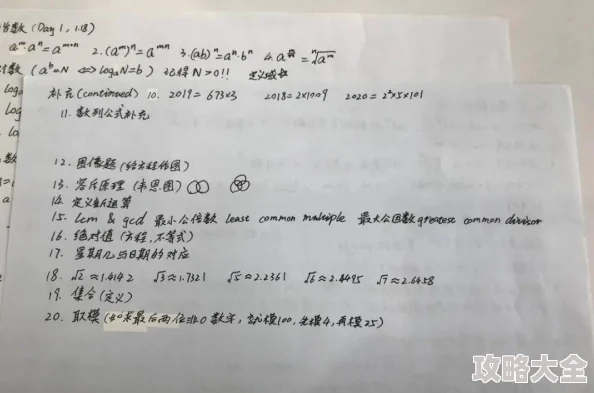 数 (Day 1, 1.18)
aᵐ·aⁿ=aᵐ⁺ⁿ 2.(aᵐ)ⁿ=aᵐⁿ 3.(ab)ⁿ=aⁿ·bⁿ 4.
数 (aᵇ=N ⇔ logₐN=b) 记得 N>0!! 定义域
补充(continued) 10. 2019=673×3 2018=2×1009 2020=2²×5×101
11. 数列公式补充
12. 图像题(给方程作图)
13. 容斥原理 (韦恩图)
14. 定义新运算
15. lcm & gcd 最小公倍数 least common multiple 最大公因数 greatest common divisor
16. 绝对值 (方程,不等式)
17. 星期几与日期的对应
18. √2≈1.4142 √3≈1.7321 √5≈2.2361 √6≈2.4495 √7≈2.6458
19. 集合(定义)
20. 取模 (如求最后两位非0数字, 就模100, 先模4, 再模25)
攻略大全